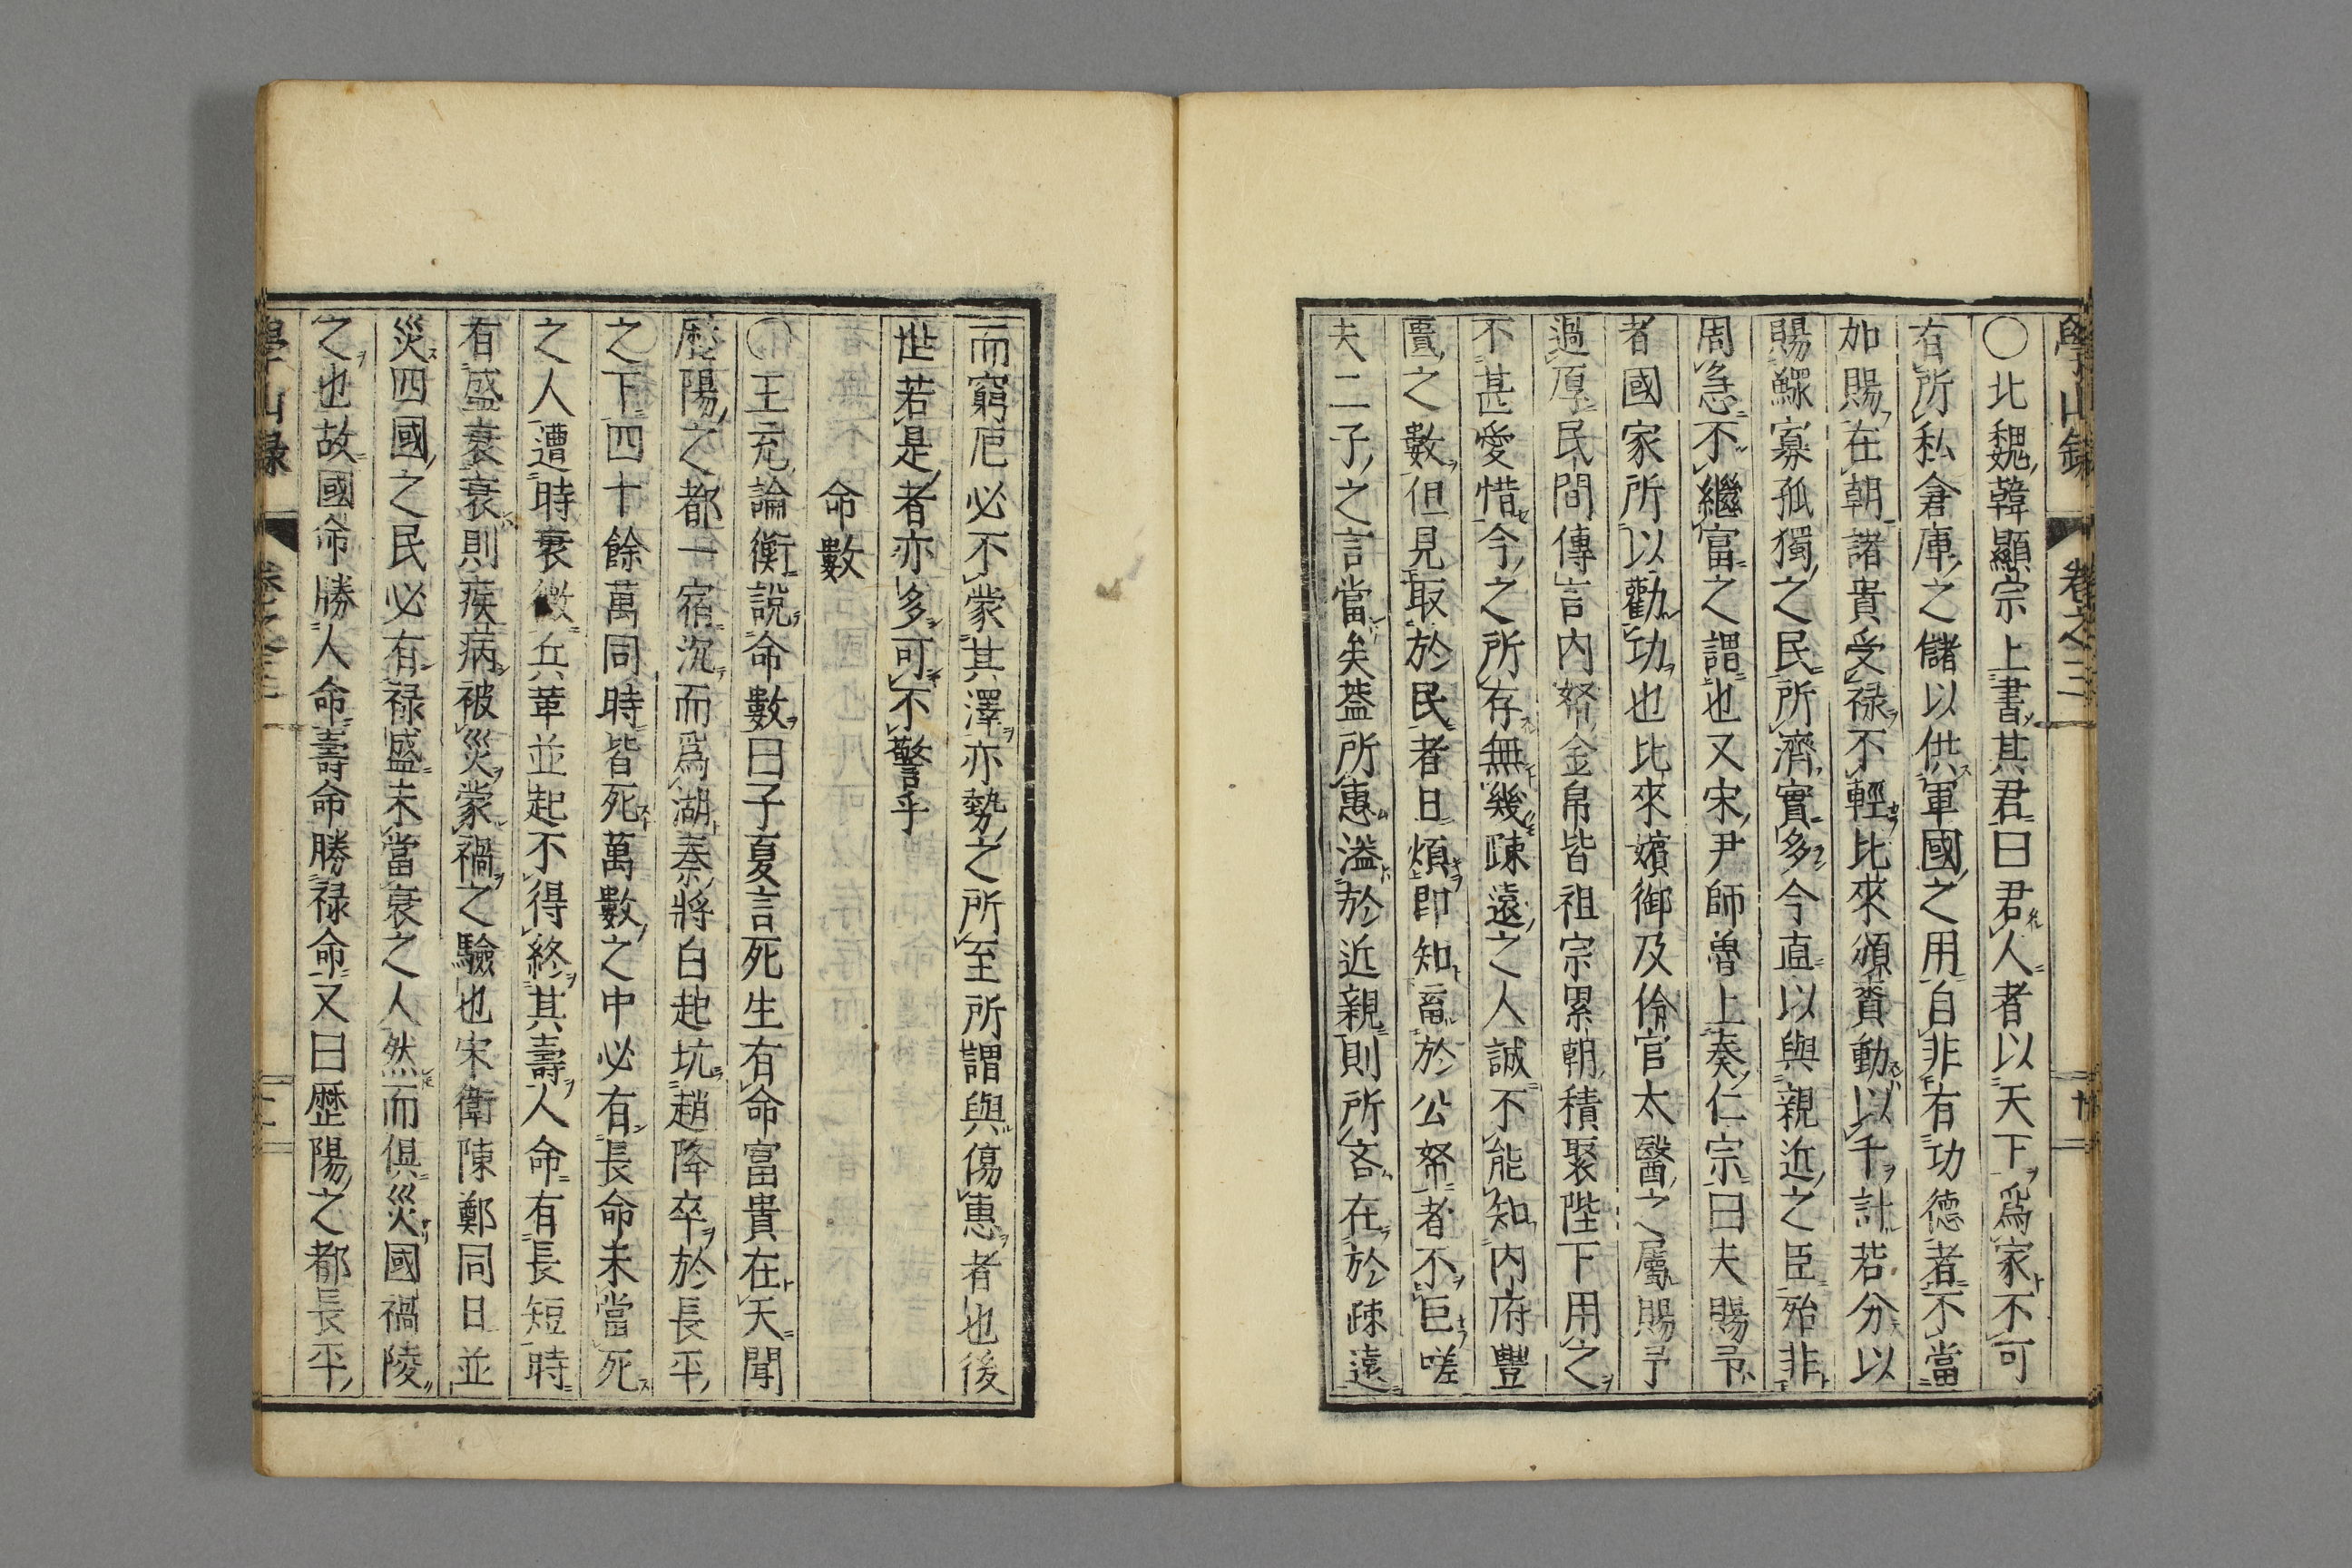 學山録 卷之三 十
〇北魏韓顯宗上書其君曰君人者以天下爲家不可
有所私倉庫之儲以供軍國之用自非有功德者不當
加賜在朝諸貴受祿不輕比來頒賚動以千計若分以
賜鰥寡孤獨之民所濟實多今直以與親近之臣殆非
周急不繼富之謂也又宋尹師魯上奏仁宗曰夫賜予
者國家所以勸功也比來嬪御及伶官太醫之屬賜予
過厚民間傳言内帑金帛皆祖宗累朝積聚陛下用之
不甚愛惜今之所存無幾疎遠之人誠不能知内府豐
匱之數但見取於民者日煩即知畜於公帑者不巨嗟
夫二子之言當矣葢所惠溢於近親則所吝在於疎遠
而窮戹必不蒙其澤亦勢之所至所謂與傷惠者也後
世若是者亦多可不警乎
命數
〇王充論衡説命數曰子夏言死生有命富貴在天聞
歷陽之都一宿沉而爲湖秦將白起坑趙降卒於長平
之下四十餘萬同時皆死萬數之中必有長命未當死
之人遭時衰微兵革並起不得終其壽人命有長短時
有盛衰衰則疾病被災蒙禍之驗也宋衛陳鄭同日並
災四國之民必有禄盛未當衰之人然而俱災國禍陵
之也故國命勝人命壽命勝禄命又曰歴陽之都長平
學山録 卷之三